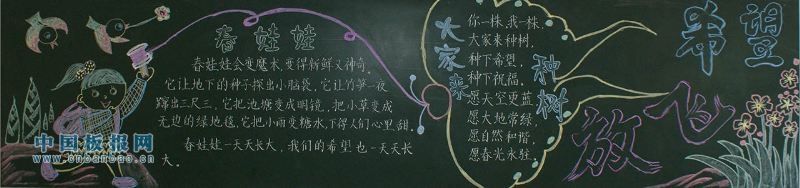 春娃娃
春娃娃会变魔术,变得新鲜又神奇。
它让地下的种子探出小脑袋,它让竹笋一夜
蹿出三尺三。它把池塘变成明镜,把小草变成
无边的绿地毯,它把小雨变糖水,下得人们心里甜。
春娃娃一天天长大,我们的希望也一天天长
大。
大家来
种树
你一株,我一株,
大家来种树,
种下希望,
种下祝福,
愿天空更蓝,
愿大地常绿,
愿自然和谐,
愿春光永驻。
希望
放飞
中国板报网
www.cnbanbao.cn